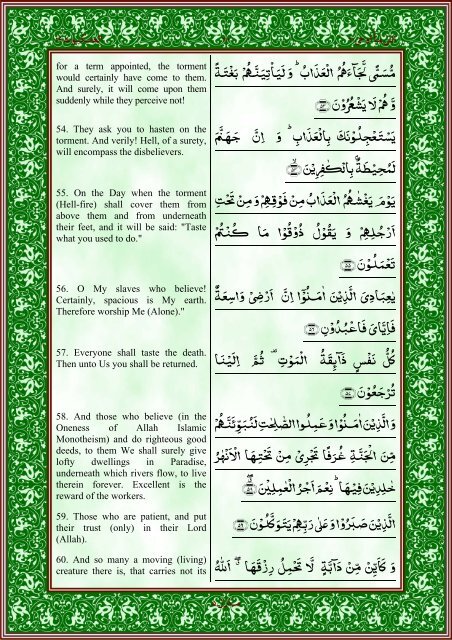 for a term appointed, the torment
would certainly have come to them.
And surely, it will come upon them
suddenly while they perceive not!
54. They ask you to hasten on the
torment. And verily! Hell, of a surety,
will encompass the disbelievers.
55. On the Day when the torment
(Hell-fire) shall cover them from
above them and from underneath
their feet, and it will be said: "Taste
what you used to do."
56. O My slaves who believe!
Certainly, spacious is My earth.
Therefore worship Me (Alone)."
57. Everyone shall taste the death.
Then unto Us you shall be returned.
58. And those who believe (in the
Oneness of Allah Islamic
Monotheism) and do righteous good
deeds, to them We shall surely give
lofty dwellings in Paradise,
underneath which rivers flow, to live
therein forever. Excellent is the
reward of the workers.
59. Those who are patient, and put
their trust (only) in their Lord
(Allah).
60. And so many a moving (living)
creature there is, that carries not its
مُّسَمًّى لَّجَآءَهُمُ الْعَذَابُ ؕ وَ لَيَاْتِيَنَّهُمْ بَغْتَةً
وَّ هُمْ لَا يَشْعُرُوْنَ ﴿۵۳﴾
يَسْتَعْجِلُوْنَكَ بِالْعَذَابِ ؕ وَ اِنَّ جَهَنَّمَ
لَمُحِيْطَةٌۢ بِالْكٰفِرِيْنَ ﴿۵۴﴾
يَوْمَ يَغْشٰىهُمُ الْعَذَابُ مِنْ فَوْقِهِمْ وَ مِنْ تَحْتِ
اَرْجُلِهِمْ وَ يَقُوْلُ ذُوْقُوْا مَا كُنْتُمْ
تَعْمَلُوْنَ ﴿۵۵﴾
يٰعِبَادِىَ الَّذِيْنَ اٰمَنُوْۤا اِنَّ اَرْضِىْ وَاسِعَةٌ
فَاِيَّاىَ فَاعْبُدُوْنِ ﴿۵۶﴾
كُلُّ نَفْسٍ ذَآئِقَةُ الْمَوْتِ ۟ ثُمَّ اِلَيْنَا
تُرْجَعُوْنَ ﴿۵۷﴾
وَ الَّذِيْنَ اٰمَنُوْا وَ عَمِلُوا الصّٰلِحٰتِ لَنُبَوِّئَنَّهُمْ
مِّنَ الْجَنَّةِ غُرَفًا تَجْرِىْ مِنْ تَحْتِهَا الْاَنْهٰرُ
خٰلِدِيْنَ فِيْهَا ؕ نِعْمَ اَجْرُ الْعٰمِلِيْنَ ﴿۵۸﴾
الَّذِيْنَ صَبَرُوْا وَ عَلٰى رَبِّهِمْ يَتَوَكَّلُوْنَ ﴿۵۹﴾
وَ كَاَيِّنْ مِّنْ دَآبَّةٍ لَّا تَحْمِلُ رِزْقَهَا ۖ اَللّٰهُ